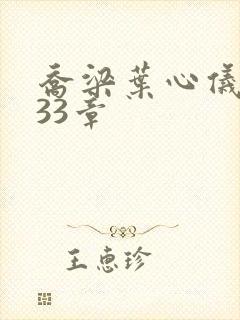 乔梁葉心儀
33章
王惠珍